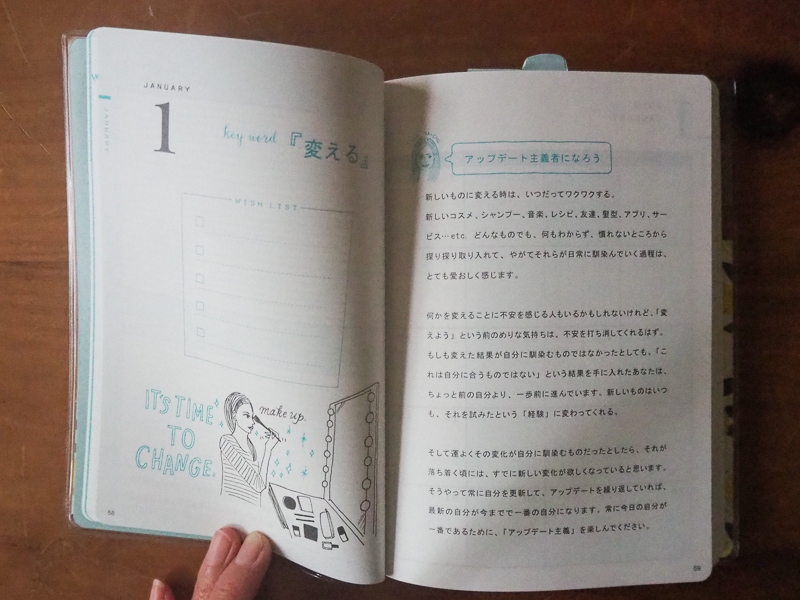 JANUARY
1
key word 『変える』
JANUARY
WISH LIST
IT'S TIME
TO
CHANGE.
make up.
58
アップデート主義者になろう
新しいものに変える時は、いつだってワクワクする。
新しいコスメ、シャンプー、音楽、レシピ、友達、髪型、アプリ、サー
ビス…etc. どんなものでも、何もわからず、慣れないところから
探り探り取り入れて、やがてそれらが日常に馴染んでいく過程は、
とても愛おしく感じます。
何かを変えることに不安を感じる人もいるかもしれないけれど、「変
えよう」という前のめりな気持ちは、不安を打ち消してくれるはず。
もしも変えた結果が自分に馴染むものではなかったとしても、「こ
れは自分に合うものではない」という結果を手に入れたあなたは、
ちょっと前の自分より、一歩前に進んでいます。新しいものはいつ
も、それを試みたという「経験」に変わってくれる。
そして運よくその変化が自分に馴染むものだったとしたら、それが
落ち着く頃には、すでに新しい変化が欲しくなっていると思います。
そうやって常に自分を更新して、アップデートを繰り返していれば、
最新の自分が今までで一番の自分になります。常に今日の自分が
一番であるために、「アップデート主義」を楽しんでください。
59